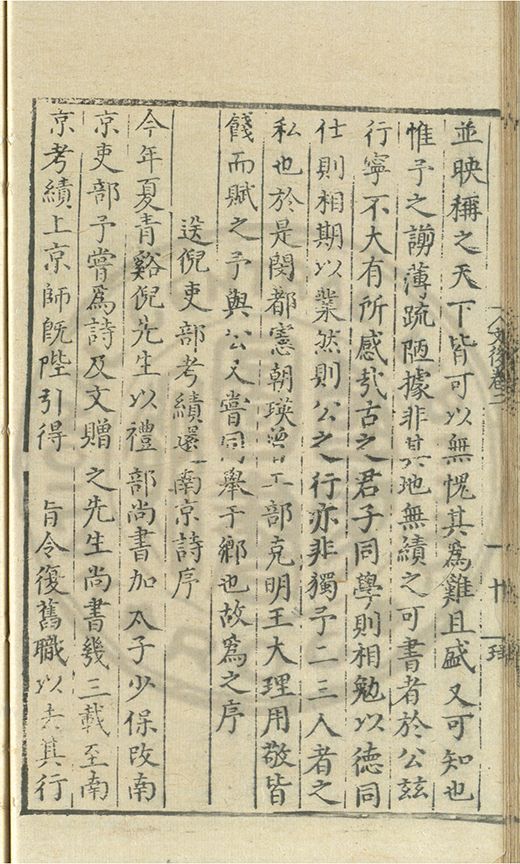 文後卷二 十
並映稱之天下皆可以無愧其爲難且盛又可知也
惟予之謭薄疏陋據非其地無績之可書者於公兹
行寧不大有所感哉古之君子同學則相勉以德同
仕則相期以業然則公之行亦非獨予二三人者之
私也於是閔都憲朝瑛曾工部克明王大理用敬皆
餞而賦之予與公又嘗同舉于鄉也故爲之序
送倪吏部考績還南京詩序
今年夏青谿倪先生以禮部尚書加太子少保改南
京吏部予嘗爲詩及文贈之先生尚書幾三載至南
京考績上京師旣陛引得 旨令復舊職以去其行